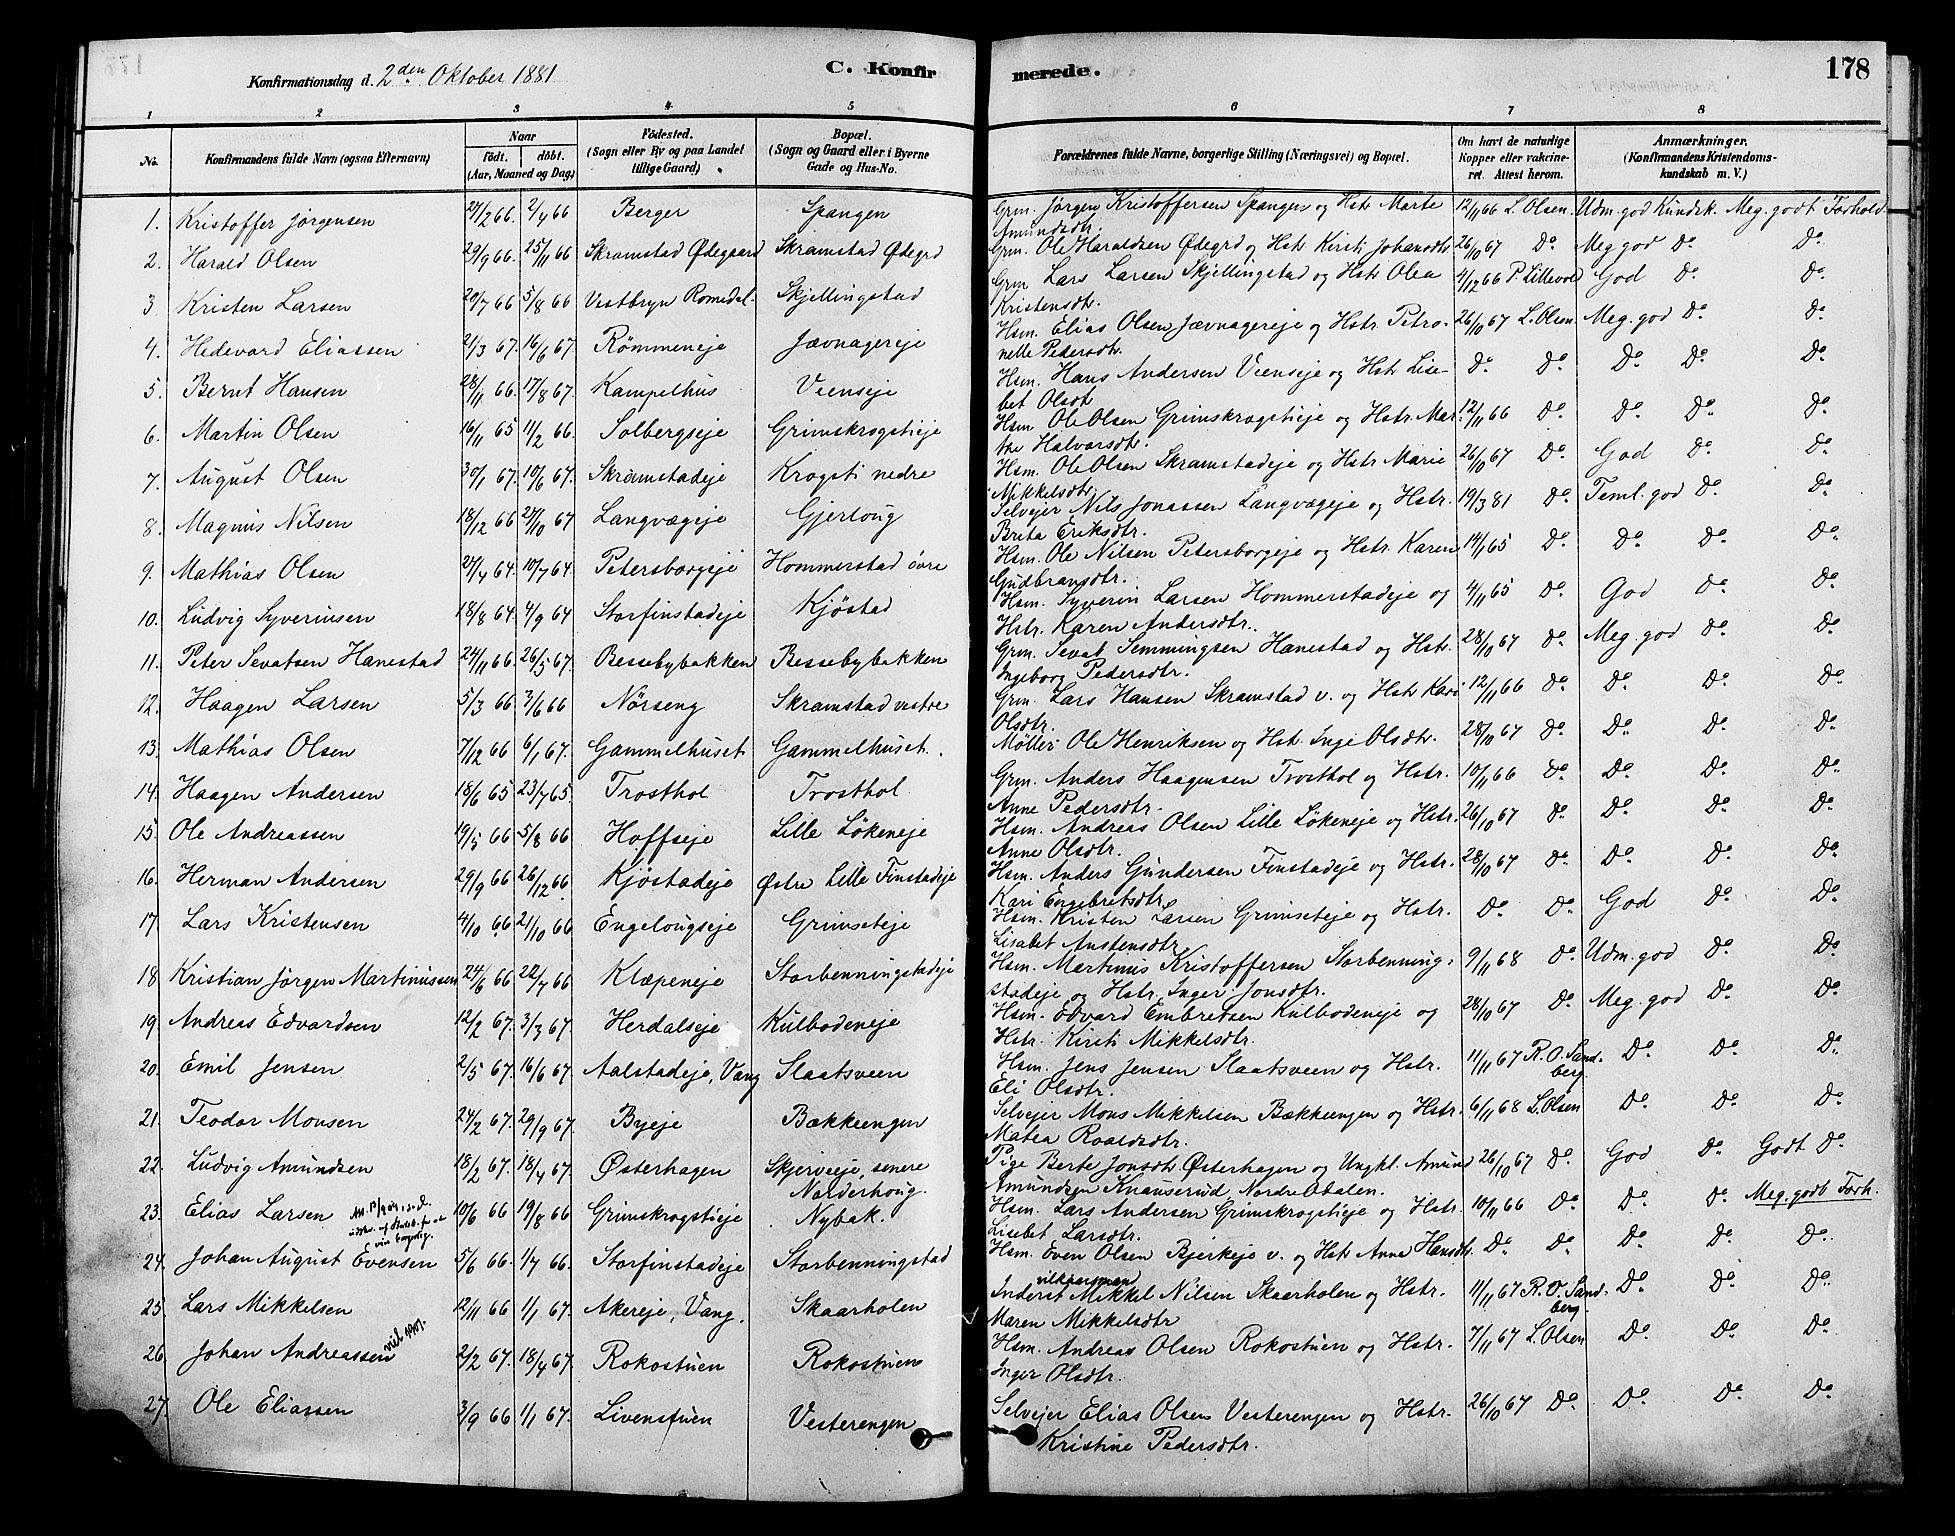 Konfirmationsdag d. 2den Oktober 1881
C. Konfirmerede.
178
1 2 3 4 5 6 7 8
No.
Konfirmandens fulde Navn (ogsaa Efternavn)
Naar
födt. döbt.
(Aar, Maaned og Dag)
Födested.
(Sogn eller By og paa Landet
tillige Gaard)
Bopæl.
(Sogn og Gaard eller i Byerne
Gade og Hus-No.
Forældrenes fulde Navne, borgerlige Stilling (Næringsvei) og Bopæl.
Om havt de naturlige
Kopper eller vakcine-
ret. Attest herom.
Anmærkninger.
(Konfirmandens Kristendoms-
kundskab m. V.)
1. Kristoffer Jörgensen 27/2 66. 2/4 66 Berger Spangen Grm. Jörgen Kristoffersen Spangen og Hstr Marte 12/11 66 L. Olsen. Udm. god Kundsk. Meg. godt Forhold
Amundsdtr.
2. Harald Olsen 29/9 66. 25/11 66 Skramstad Ødegaard Skramstad Ødegrd Grm. Ole Haraldsen Ødegrd og Hstr Kirsti Johansdtr 26/10 67 Do. Meg god Do. Do.
3. Kristen Larsen 20/7 66 5/8 66 Vestbryn Romedal Skjellingstad Grm Lars Larsen Skjellingstad og Hstr Olea 4/12 66 P. Lillevold God Do. Do.
Kristensdtr.
4. Hedevard Eliassen 21/3 67. 16/6 67 Römmeneje Jævnagereje Hsm. Elias Olsen Jævnagereje og Hstr. Petro- 26/10 67 L. Olsen. Meg. god Do. Do.
nelle Pedersdtr.
5. Bernt Hansen 28/11 66. 17/8 67. Kampelhus Veenseje Hsm. Hans Andersen Veenseje og Hstr Lise- Do. Do. Do. Do. Do.
bet Olsdt
6. Martin Olsen 16/11 65 11/2 66. Solbergseje Grimskrogstieje Hsm Ole Olsen Grimskrogstieje og Hstr Mar- 12/11 66 Do. Do. Do. Do.
the Halvorsdtr.
7. August Olsen 30/1 67. 10/6 67. Skramstadeje Krogsti nedre Hsm. Ole Olsen Skramstadeje og Hstr Marie 26/10 67 Do. God Do. Do.
Mikkelsdtr
8. Magnus Nilsen 18/12 66 27/10 67 Langvægeje Gjerloug Selvejer Nils Jonassen Langvægeje og Hstr. 19/3 81 Do. Teml. god Do. Do.
Brita Eriksdtr.
9. Mathias Olsen 27/4 64. 10/7 64. Petersborgeje Hommerstad övre Hsm. Ole Nilsen Petersborgeje og Hstr. Karen 14/11 65 Do. Do. Do. Do.
Gudbransdtr.
10. Ludvig Syverinsen 18/8 64 4/9 64 Storfinstadeje Kjöstad Hsm. Syverin Larsen Hommerstadeje og 4/11 65 Do. God Do. Do.
Hstr. Karen Andersdtr.
11. Peter Sevatsen Hanestad 24/11 66. 26/5 67. Bessebybakken Bessebybakken Grm. Sevat Semmingsen Hanestad og Hstr. 28/10 67 Do. Meg. god Do. Do.
Ingeborg Pedersdtr.
12. Haagen Larsen 5/3 66. 3/6 66 Nörseng Skramstad vestre Grm. Lars Hansen Skramstad v. og Hstr Kari 12/11 66 Do. Do. Do. Do.
Olsdtr.
13. Mathias Olsen 7/12 66 6/1 67. Gammelhuset Gammelhuset. Möller Ole Henriksen og Hstr. Inge Olsdtr. 28/10 67 Do. Do. Do. Do.
14. Haagen Andersen 18/6 65 23/7 65. Trosthol Trosthol Grm. Anders Haagensen Trosthol og Hstr. 10/11 66 Do. Do. Do. Do.
Anne Pedersdtr.
15. Ole Andreassen 19/5 66 5/8 66 Hoffseje Lille Lökeneje Hsm. Andreas Olsen Lille Lökeneje og Hstr. 26/10 67 Do. Do. Do. Do.
Anne Olsdtr.
16. Herman Andersen 29/9 66 26/12 66 Kjöstadeje Østre Lille Finstadeje Hsm. Anders Gundersen Finstadeje og Hstr. 28/10 67 Do. Do. Do. Do.
Kari Engebretsdtr
17. Lars Kristensen 4/10 66 21/10 66 Engelougseje Grimseteje Hsm. Kristen Larsen Grimseteje og Hstr. Do. Do. God Do. Do.
Lisabet Austensdtr
18 Kristian Jörgen Martinussen 24/6 66 22/7 66 Klæpeneje Storbenningstadeje Hsm. Martinus Kristoffersen Storbenning- 9/11 68 Do. Udm. god Do. Do.
stadeje og Hstr. Inger Jonsdtr.
19. Andreas Edvardsen 12/2 67. 3/3 67. Herdalseje Kulbodeneje Hsm. Edvard Embretsen Kulbodeneje og 28/10 67 Do. Meg. god Do. Do.
Hstr. Kirsti Mikkelsdtr.
20. Emil Jensen 2/5 67. 16/6 67 Aalstadeje, Vang Slaatsveen Hsm. Jens Jensen Slaatsveen og Hstr. 11/11 67 R. O. Sand- Do. Do. Do.
Eli Olsdtr. berg
21. Teodor Monsen 24/2 67. 29/9 67. Byeje Bækkeengen Selvejer Mons Mikkelsen Bækkeengen og Hstr. 6/11 68 L. Olsen Do. Do. Do.
Matea Roaldsdtr.
22. Ludvig Amundsen 18/2 67. 18/4 67. Østerhagen Skjerveeje, senere Pige Berte Jonsdtr Østerhagen og Ungkl. Amund 26/10 67 Do. God Do. Godt Do.
Norderhoug. Amundsen Knauserud, Nordre Odalen.
23. Elias Larsen 10/6 66 19/8 66 Grimskrogstieje Nybak. Hsm. Lars Andersen Grimskrogstieje og Hstr. 10/11 66 Do. Do. Do. Meg. godt Forh.
Lisebet Larsdtr.
24. Johan August Evensen 5/6 66 1/7 66. Storfinstadeje Storbenningstad Hsm. Even Olsen Bjerkeje v. og Hstr Anne Hansdtr. Do. Do. Do. Do. Do.
25. Lars Mikkelsen 12/11 66 1/1 67. Akereje, Vang. Skaarholen Inderst Mikkel Nilsen Skaarholen og Hstr. 11/11 67 R. O. Sand- Do. Do. Do.
Maren Mikkelsdtr berg.
26. Johan Andreassen 2/2 67. 18/4 67. Rokostuen Rokostuen Hsm. Andreas Olsen Rokostuen og Hstr. 7/11 67 L. Olsen Do. Do. Do.
Inger Olsdtr.
27. Ole Eliassen 3/9 66 1/1 67. Livenstuen Vesterengen Selvejer Elias Olsen Vesterengen og Hstr. 26/10 67 Do. Do. Do. Do.
Kristine Pedersdtr.